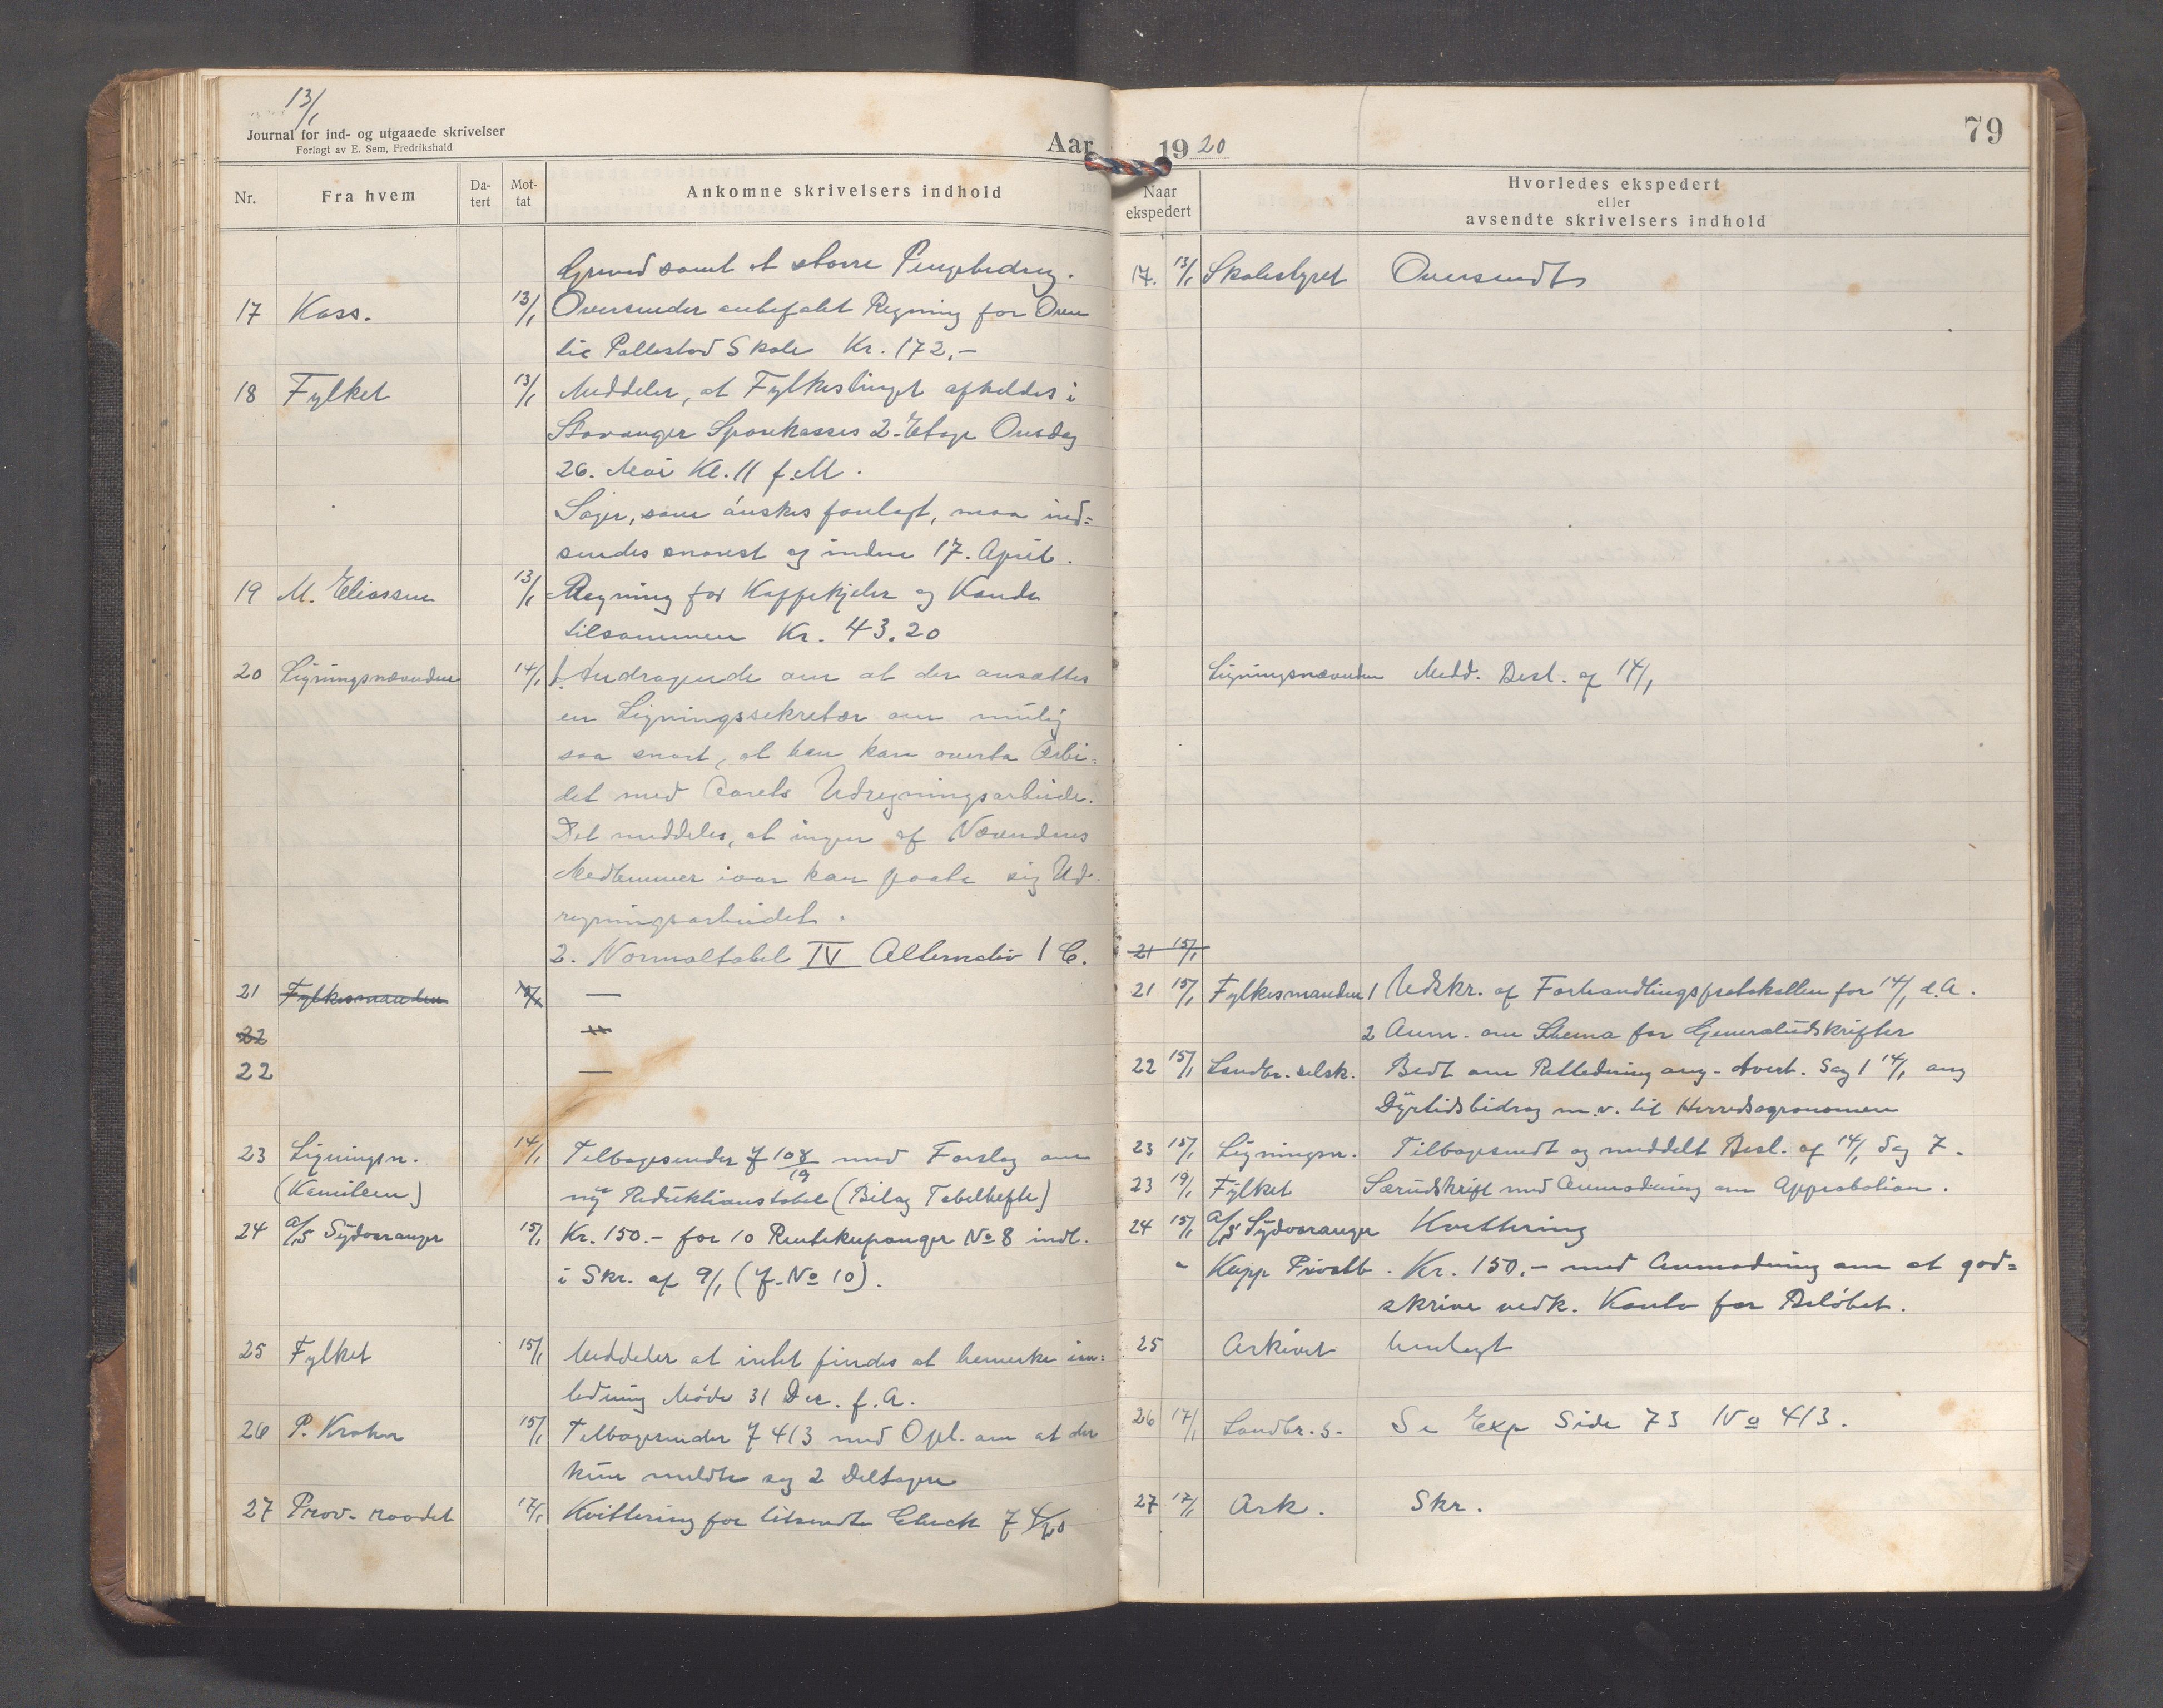 13/1
Journal for ind- og utgaaede skrivelser
Forlagt av E. Sem, Fredrikshald
Aar
Nr.
Fra hvem
Da-
tert
Mot-
tat
Ankomne skrivelsers indhold
Grund samt et større Pengebidrag.
17 Kass. 13/1 Oversender anbefalet Regning for Ovn
til Pallestad Skole Kr. 172.-
18 Fylket 13/1 Meddeler, at Fylkestinget afholdes i
Stavanger Sparekasses 2-Etage Onsdag
26. Mai Kl. 11 f.M.
Sager, som ønskes forelagt, maa ind=
sendes snarest og inden 17. April.
19 M. Eliassen 13/1 Regning for Kaffekjeler og Kande
tilsammen Kr. 43.20
20 Ligningsnævnden 14/1 1. Andragende om at der ansættes
en Ligningssekretær om mulig
saa snart, at han kan overta Arbei-
det med Aarets Udregningsarbeide.
Det meddeles, at ingen af Nævndens
Medlemmer iaar kan paata sig Ud-
regningsarbeidet.
2. Normaltabel IV Alternativ 1 C.
21 Fylkesmanden 15/1 —
22
22 —
23 Ligningsn. 14/1 Tilbagesender J 108/19 med Forslag om
(Kemileen) ny Reduktionstabel (Bilag Tabelhefte)
24 a/s Sydvaranger 15/1 Kr. 150.- for 10 Rentekuponger No 8 indl.
i Skr. af 9/1 (J. No 10).
25 Fylket 15/1 Meddeler at intet findes at bemerke ian-
ledning Møde 31 Dec. f. A.
26 P. Krohn 15/1 Tilbagesender J 413 med Opl. om at der
kun meldte sig 2 Deltagere
27 Prov. raadet 17/1 Kvittering for tilsendte Check J 4/20
19 20
79
Naar
ekspedert
Hvorledes ekspedert
eller
avsendte skrivelsers indhold
17. 13/1 Skolestyret Oversendt
Ligningsnævnden Medd. Besl. af 14/1
21 15/1
21 15/1 Fylkesmanden 1 Udskr. af Forhandlingsprotokollen for 14/1 d.A.
2 Anm. om Skema for Generaludskrifter
22 15/1 Landbr. selsk. Bedt om Veiledning ang. Avert. Sag 1 14/1 ang
Dyrtidsbidrag m.v. til Herredsagronomen
23 15/1 Ligningsn. Tilbagesendt og meddelt Besl. af 14/1 Sag 7.
23 19/1 Fylket Særudskrift med Anmodning om Approbation.
24 15/1 a/s Sydvaranger Kvittering
" Kupp Privatb. Kr. 150.- med Anmodning om at god=
skrive vedk. Konto for Beløbet.
25 Arkivet Henlagt
26 17/1 Landbr. s. Se Exp Side 73 No 413.
27 17/1 Ark. Skr.